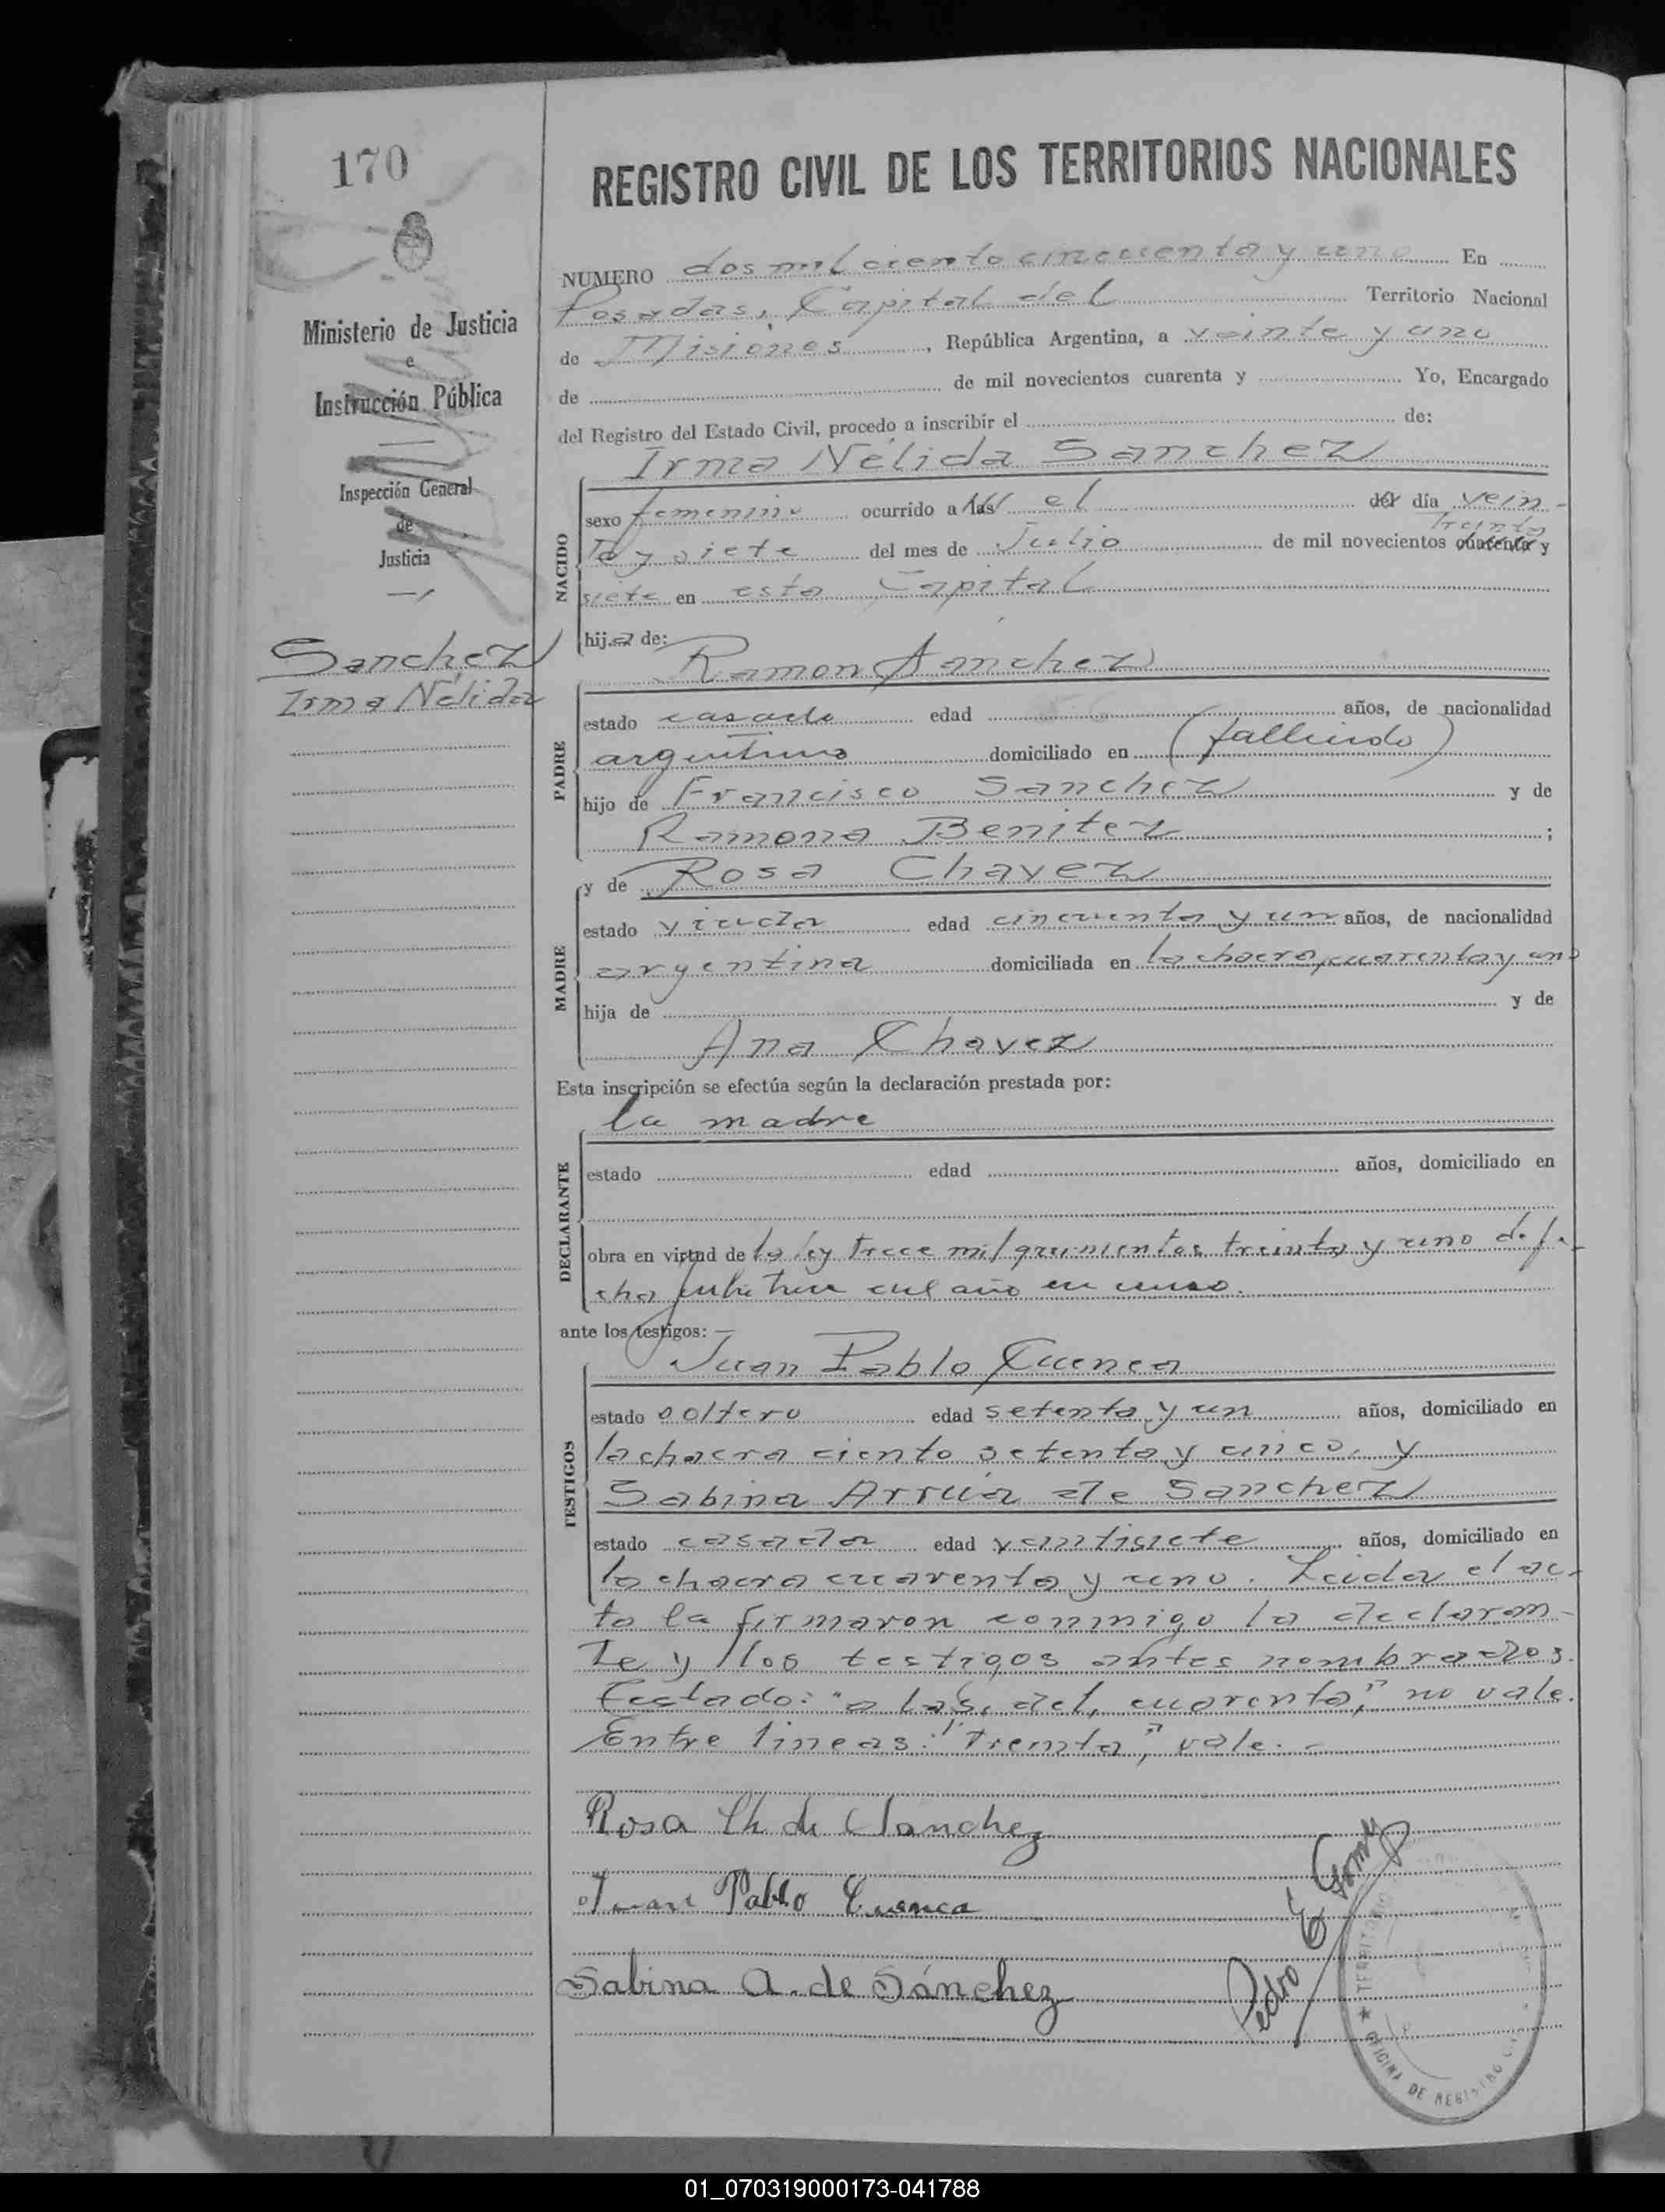 170
Ministerio de Justicia
e
Instrucción Pública
Inspección General
de
Justicia
Sanchez
Irma Nélida
REGISTRO CIVIL DE LOS TERRITORIOS NACIONALES
NUMERO dos mil ciento cincuenta y uno En
Posadas, Capital del Territorio Nacional
de Misiones, República Argentina, a veinte y uno
de de mil novecientos cuarenta y Yo, Encargado
del Registro del Estado Civil, procedo a inscribir el de:
Irma Nélida Sanchez
NACIDO
sexo femenino ocurrido a las el del día vein-
treinta
te y siete del mes de Julio de mil novecientos cuarenta y
siete en esta Capital
hija de:
Ramon Sanchez
PADRE
estado casado edad años, de nacionalidad
argentino domiciliado en (fallecido)
hijo de Francisco Sanchez y de
Ramona Benitez ;
MADRE
y de Rosa Chavez
estado viuda edad cincuenta y un años, de nacionalidad
argentina domiciliada en la chacra cuarenta y uno
hija de y de
Ana Chavez
Esta inscripción se efectúa según la declaración prestada por:
la madre
DECLARANTE
estado edad años, domiciliado en
obra en virtud de la ley trece mil quinientos treinta y uno de fe-
cha del año en curso.
ante los testigos:
Juan Pablo Cuenca
TESTIGOS
estado soltero edad setenta y un años, domiciliado en
la chacra ciento setenta y cinco, y
Sabina Arrúa de Sanchez
estado casada edad veintisiete años, domiciliado en
la chacra cuarenta y uno. Leida el ac-
ta la firmaron conmigo la declaran-
te y los testigos antes nombrados.
Testado: "a las, del, cuarenta," no vale.
Entre lineas: "Treinta", vale.-
Rosa Ch. de Sanchez
Juan Pablo Cuenca
Sabina A. de Sánchez
Pedro E Gomez
OFICINA DE REGISTRO
01_070319000173-041788